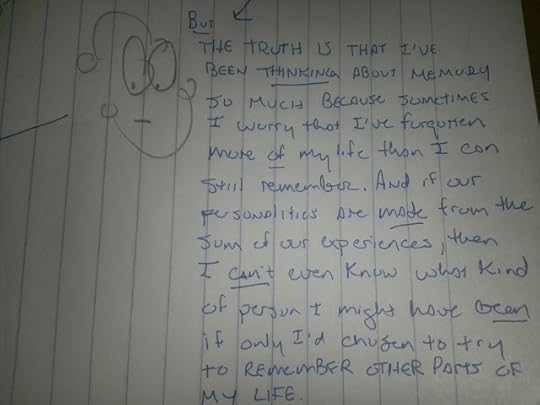 BUT
THE TRUTH IS THAT I'VE
BEEN THINKING ABOUT MEMORY
SO MUCH BECAUSE SOMETIMES
I worry that I've forgotten
more of my life than I can
still remember. And if our
personalities are made from the
sum of our experiences, then
I can't even know what kind
of person I might have been
if only I'd chosen to try
to REMEMBER OTHER PARTS OF
MY LIFE.